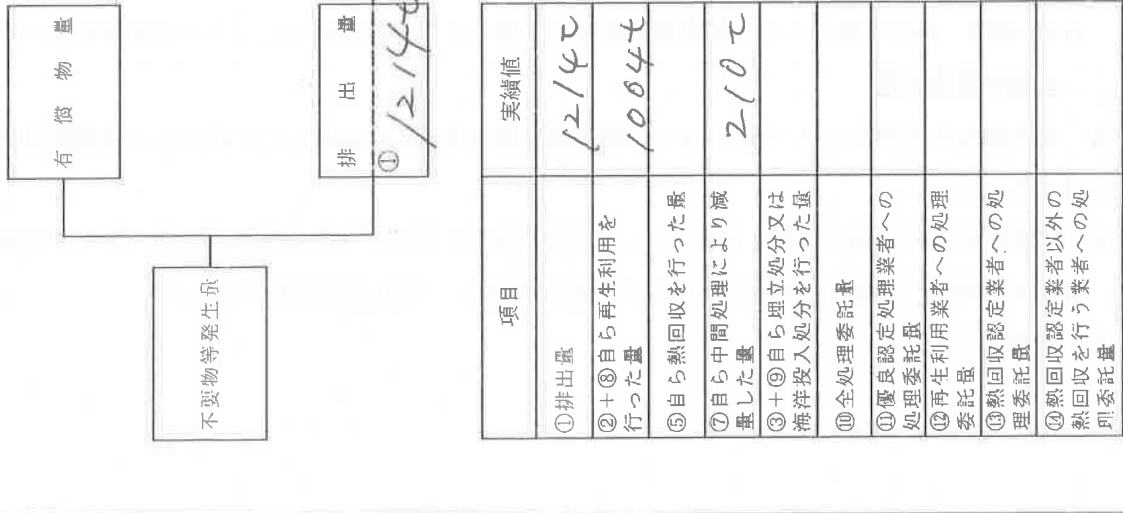 有償物量
不要物等発生量
排出量
①
1214t
項目
実績値
①排出量
1214t
②+⑧自ら再生利用を
行った量
1004t
⑤自ら熱回収を行った量
⑦自ら中間処理により減
量した量
210t
③+⑨自ら埋立処分又は
海洋投入処分を行った量
⑩全処理委託量
⑪優良認定処理業者への
処理委託量
⑫再生利用業者への処理
委託量
⑬熱回収認定業者への処
理委託量
⑭熱回収認定業者以外の
熱回収を行う業者への処
理委託量